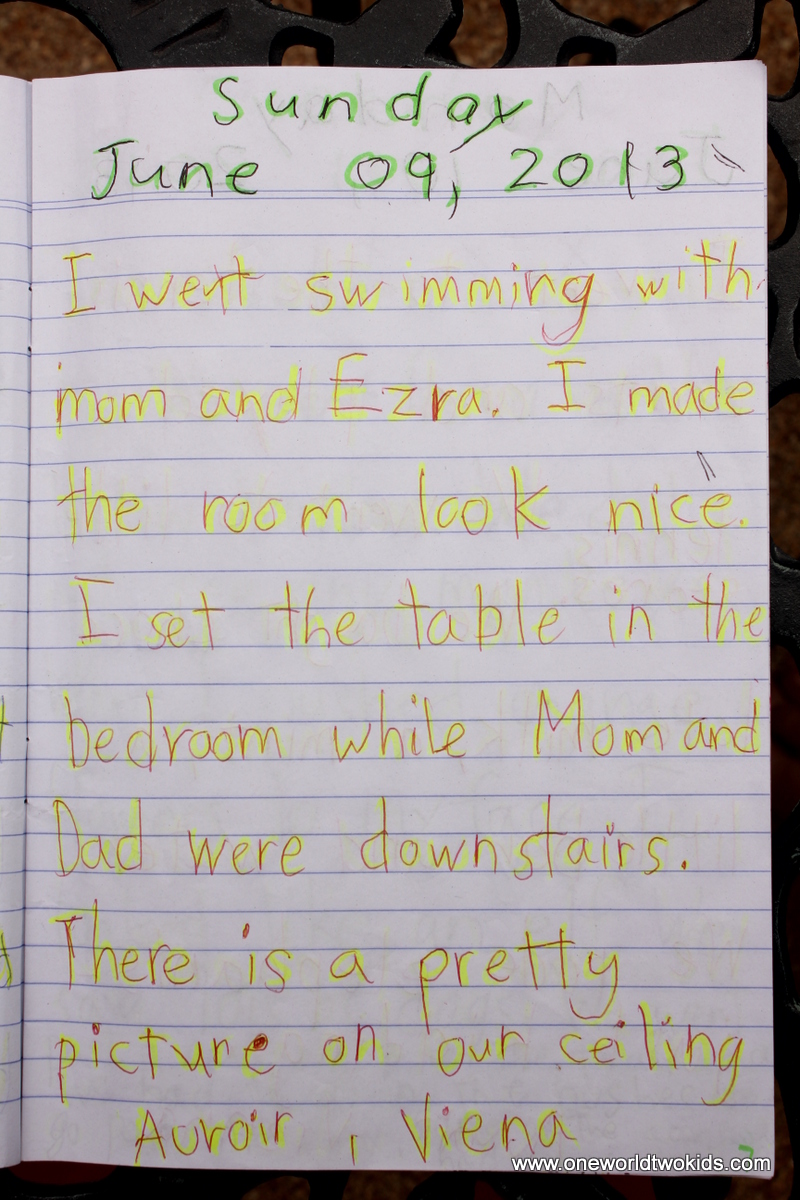 Sunday
June 09, 2013
I went swimming with
mom and Ezra. I made
the room look nice.
I set the table in the
bedroom while Mom and
Dad were downstairs.
There is a pretty
picture on our ceiling
Auroir, Viena
www.oneworldtwokids.com